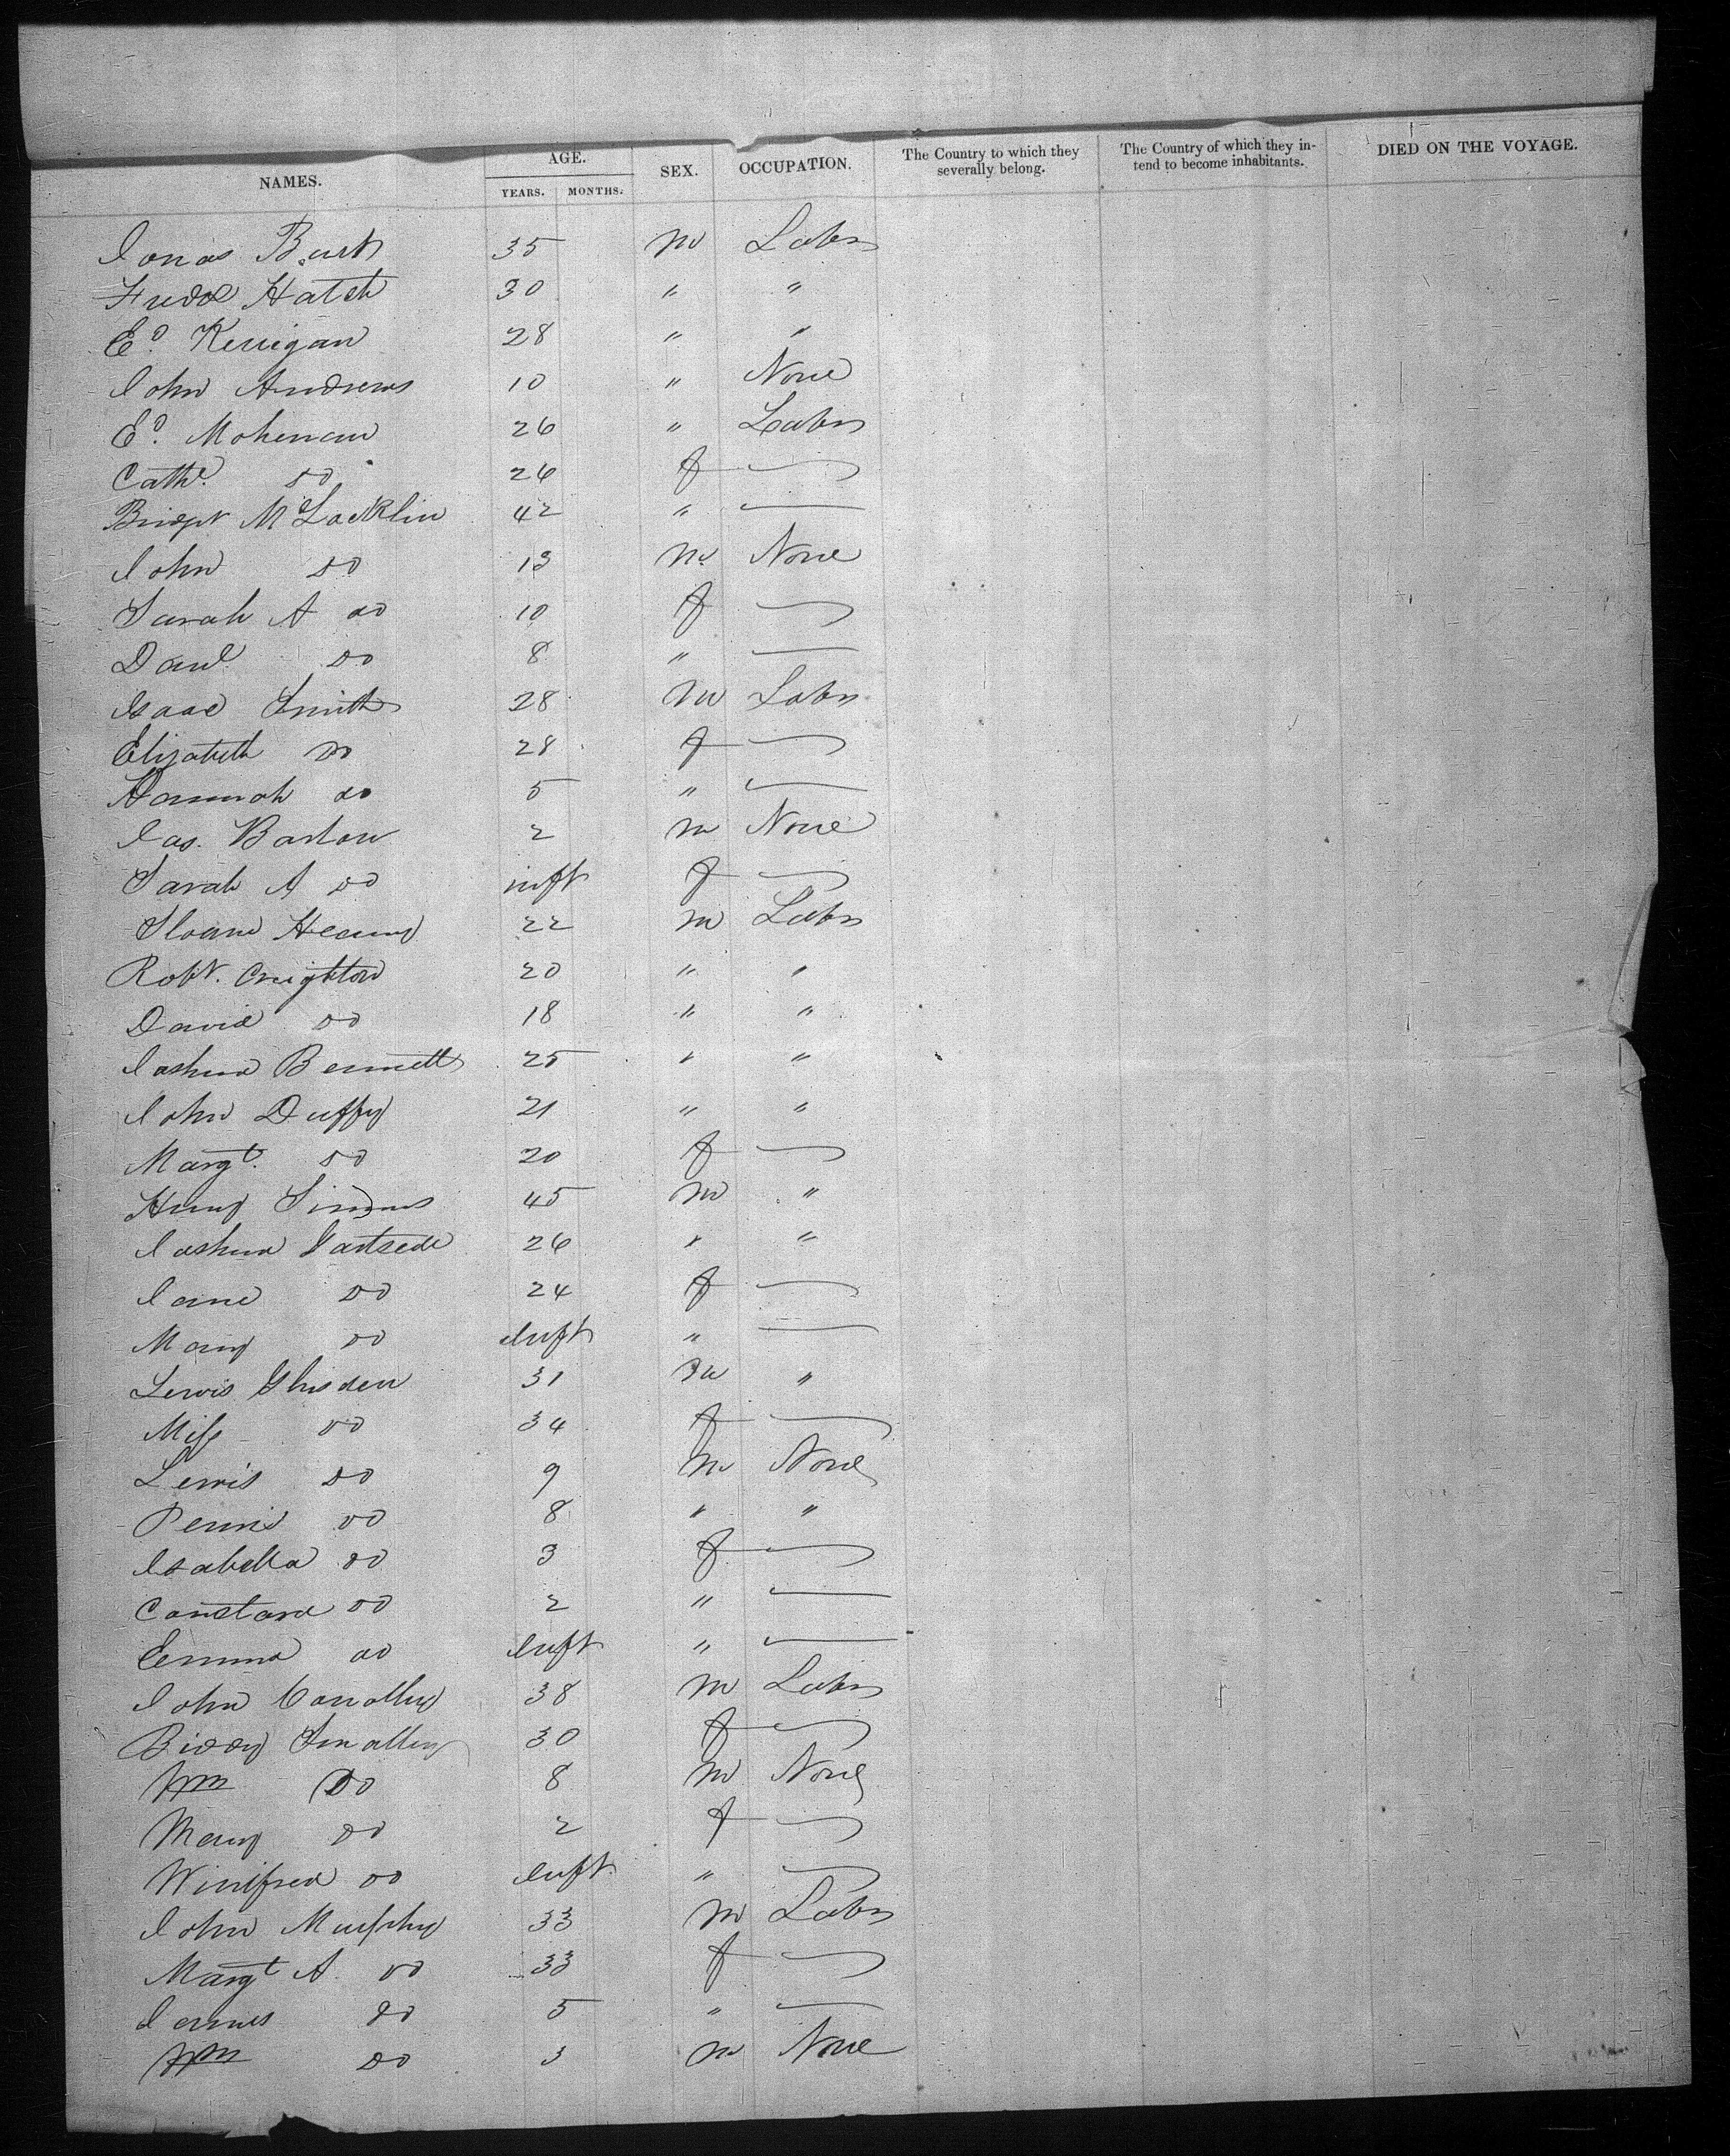 NAMES. AGE. YEARS. MONTHS. SEX. OCCUPATION. The Country to which they severally belong. The Country of which they intend to become inhabitants. DIED ON THE VOYAGE.
Jonas 35 m Labr
Fredk Hatch 30 " "
Ed. Kerrigan 28 " "
John Andrews 10 " None
Ed. 26 " Labr
Cathe. do 26 f
Bridget McLacklin 42 "
John do 13 m None
Sarah A do 10 f
Danl do 8 "
Isaac Smith 28 m Labr
Elizabeth do 28 f
Hannah do 5 "
Jas. Barlow 2 m None
Sarah A do inft f
22 m Labr
Robt. Creighton 20 " "
David do 18 " "
Joshua Bennett 25 " "
John Duffy 21 " "
Margt. do 20 f
Henry Simms 45 m "
Joshua 26 " "
Jane do 24 f
Mary do Inft "
Lewis 31 m "
Miss do 34 f
Lewis do 9 m None
do 8 " "
Isabella do 3 f
do 2 "
Emma do Inft "
John Conolly 38 m Labr
Biddy Smalley 30 f
Wm Do 8 m None
Mary do 2 f
Winifred do Inft "
John Murphy 33 m Labr
Margt A. do 33 f
James do 5 "
Wm do 3 m None